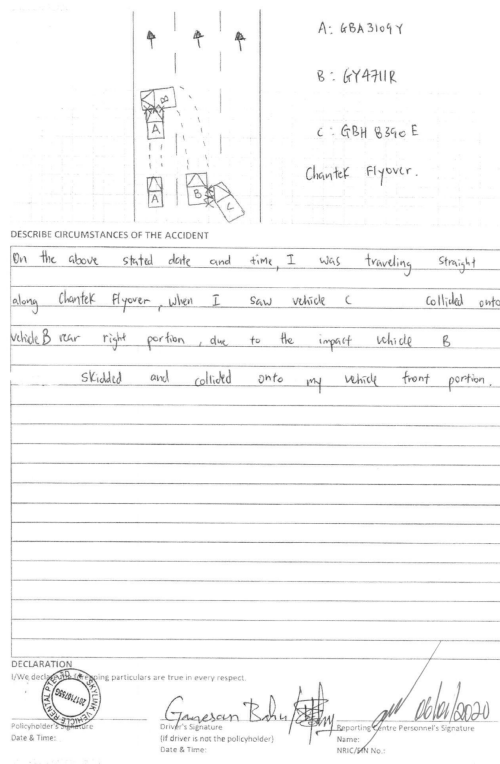 A: GBA3109Y
B: GY4711R
C: GBH 8390 E
Chantek Flyover.
B
A
A
B
C
DESCRIBE CIRCUMSTANCES OF THE ACCIDENT
On the above stated date and time, I was traveling straight
along Chantek Flyover, when I saw vehicle C collided onto
vehicle B rear right portion, due to the impact vehicle B
skidded and collided onto my vehicle front portion.
DECLARATION
I/We declare the foregoing particulars are true in every respect.
SKYLINK VEHICLE RENTAL PTE LTD
Ganesan
06/01/2020
Policyholder's Signature
Date & Time:
Driver's Signature
(If driver is not the policyholder)
Date & Time:
Reporting Centre Personnel's Signature
Name:
NRIC/FIN No.: